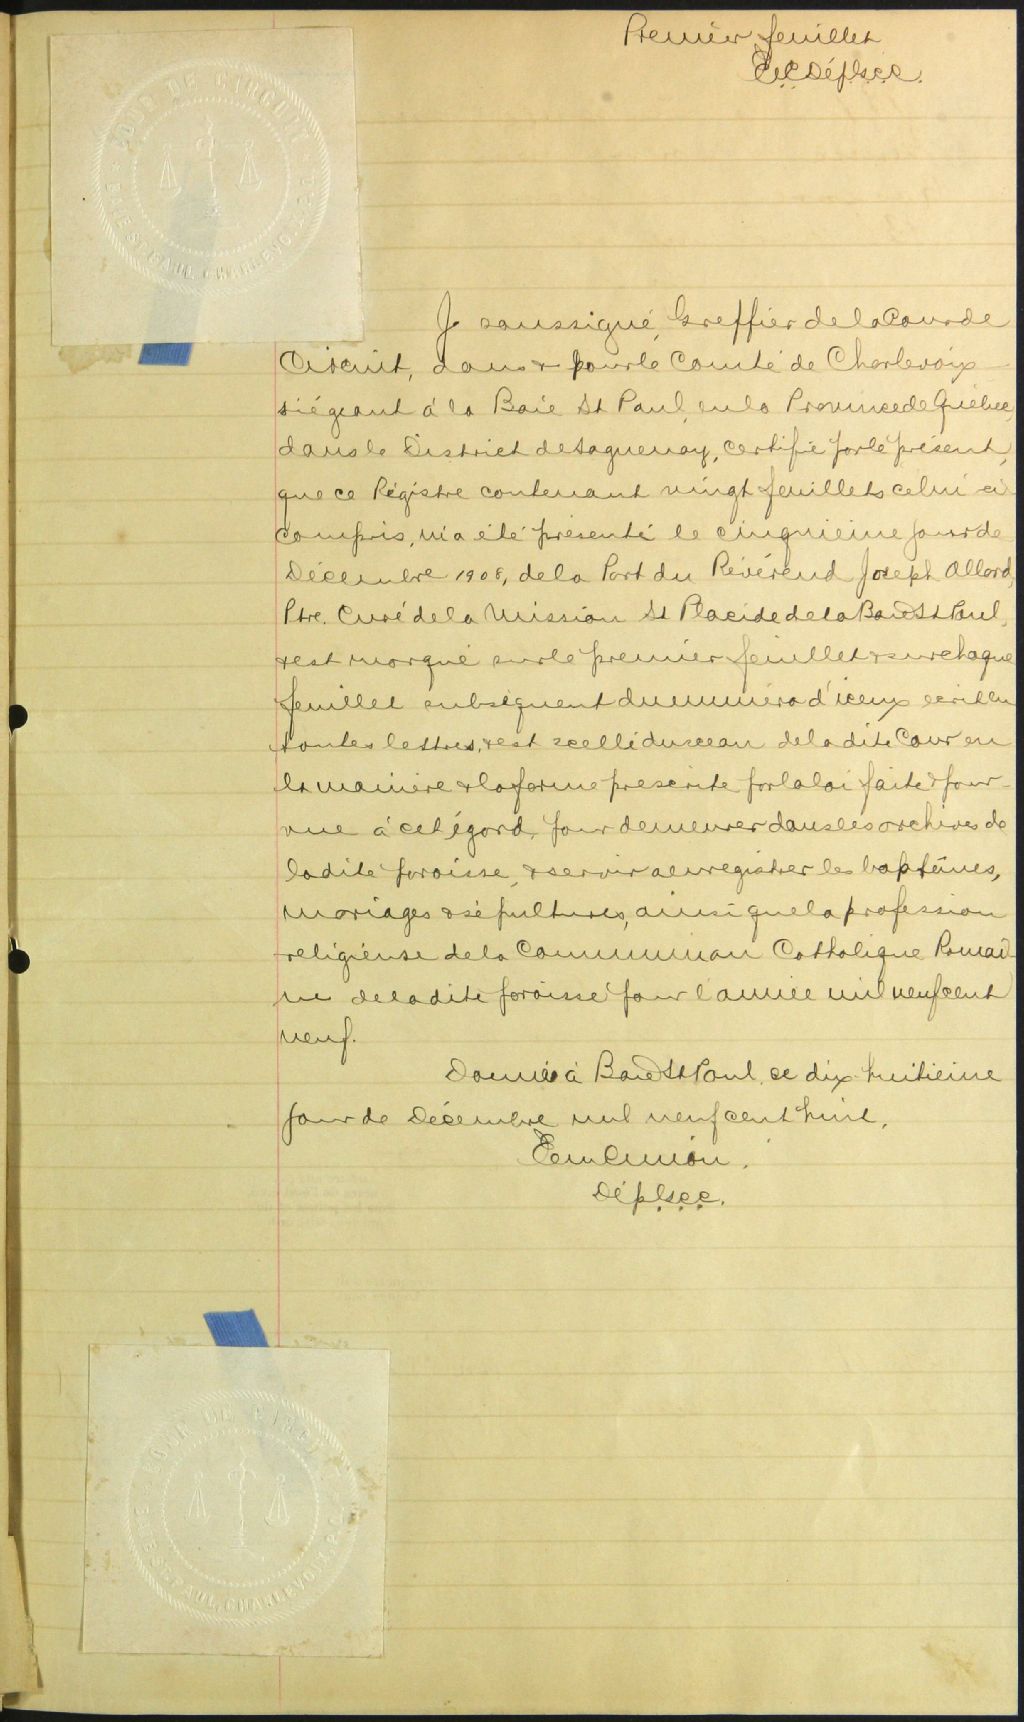 Premier feuillet
Dép. G.C.C.
COUR DE CIRCUIT
BAIE ST. PAUL, CHARLEVOIX, P.Q.
Je soussigné, Greffier de la Cour de
Circuit, dans & pour le Comté de Charlevoix
siégeant à la Baie St Paul, en la Province de Québec,
dans le District de Saguenay, certifie par le présent,
que ce Régistre contenant vingt feuillets celui ci
compris, m'a été présenté le cinquième jour de
Décembre 1908, de la Part du Révérend Joseph Allard,
Ptre. Curé de la Mission St Placide de la Baie St Paul,
& est marqué sur le premier feuillet & sur chaque
feuillet subséquent du numéro d'iceux écrit en
toutes lettres, & est scellé du sceau de la dite Cour en
la manière & la forme prescrite par la loi faite & pour-
vue à cet égard, pour demeurer dans les archives de
la dite paroisse, & servir a enregistrer les baptêmes,
mariages & sépultures, ainsi que la profession
religieuse de la Communion Catholique Romai-
ne de la dite paroisse pour l'année mil neuf cent
neuf.
Donné à Baie St Paul, ce dix-huitième
jour de Décembre mil neuf cent huit.
Dép. G.C.C.
COUR DE CIRCUIT
BAIE ST. PAUL, CHARLEVOIX, P.Q.